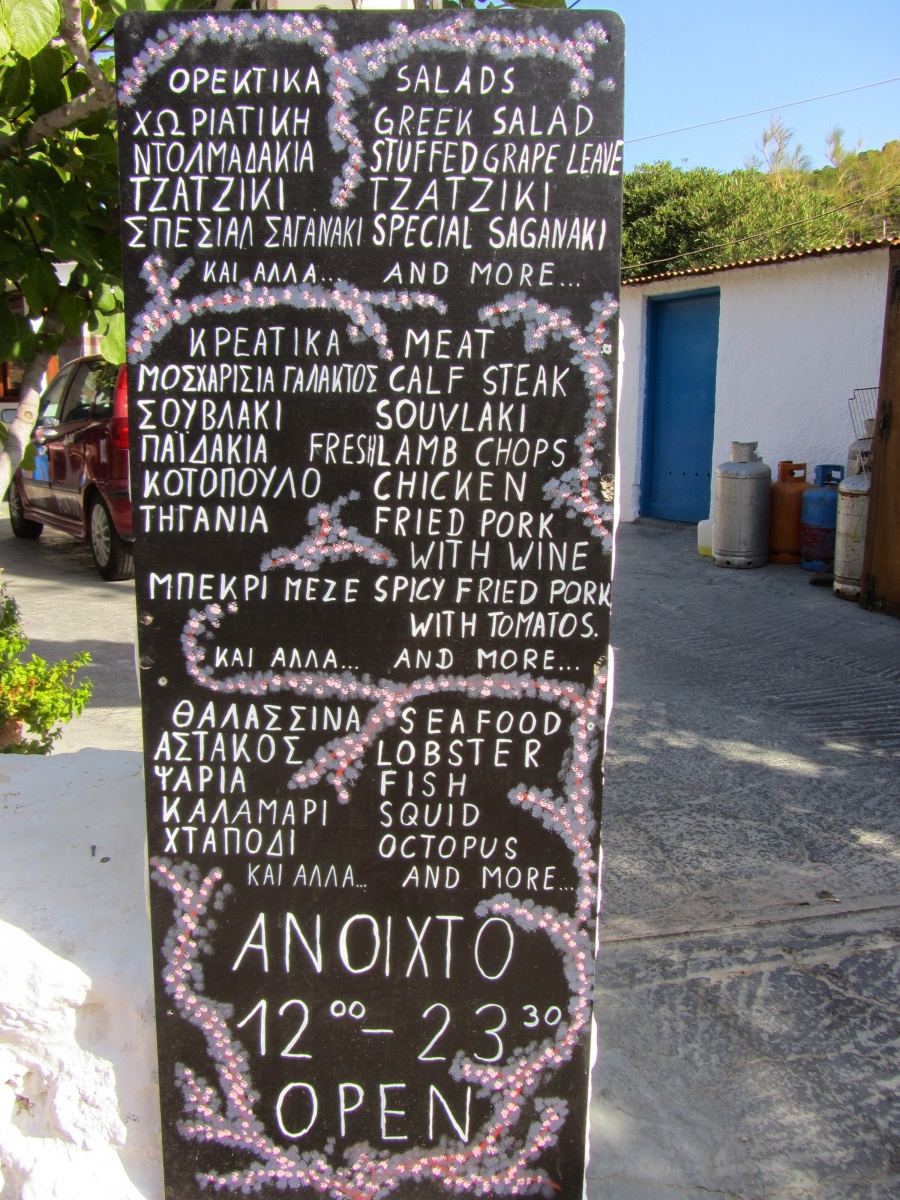 ΟΡΕΚΤΙΚΑ SALADS
ΧΩΡΙΑΤΙΚΗ GREEK SALAD
ΝΤΟΛΜΑΔΑΚΙΑ STUFFED GRAPE LEAVE
ΤΖΑΤΖΙΚΙ TZATZIKI
ΣΠΕΣΙΑΛ ΣΑΓΑΝΑΚΙ SPECIAL SAGANAKI
ΚΑΙ ΑΛΛΑ... AND MORE...
ΚΡΕΑΤΙΚΑ MEAT
ΜΟΣΧΑΡΙΣΙΑ ΓΑΛΑΚΤΟΣ CALF STEAK
ΣΟΥΒΛΑΚΙ SOUVLAKI
ΠΑΪΔΑΚΙΑ FRESH LAMB CHOPS
ΚΟΤΟΠΟΥΛΟ CHICKEN
ΤΗΓΑΝΙΑ FRIED PORK
WITH WINE
ΜΠΕΚΡΙ ΜΕΖΕ SPICY FRIED PORK
WITH TOMATOS.
ΚΑΙ ΑΛΛΑ... AND MORE...
ΘΑΛΑΣΣΙΝΑ SEAFOOD
ΑΣΤΑΚΟΣ LOBSTER
ΨΑΡΙΑ FISH
ΚΑΛΑΜΑΡΙ SQUID
ΧΤΑΠΟΔΙ OCTOPUS
ΚΑΙ ΑΛΛΑ... AND MORE...
ΑΝΟΙΧΤΟ
12⁰⁰ - 23³⁰
OPEN